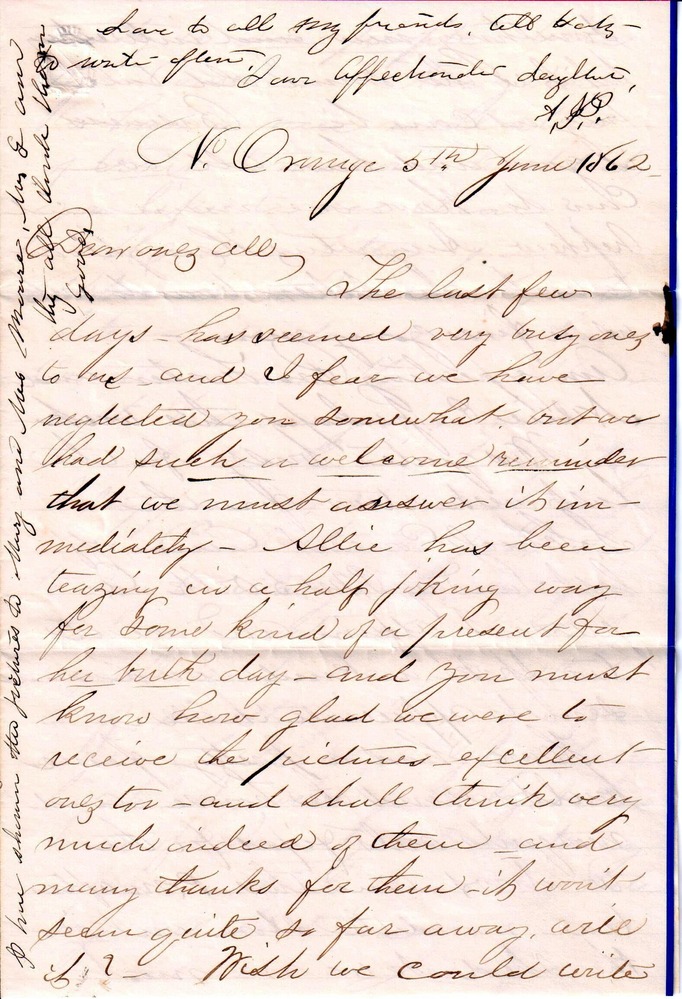 Love to all my friends, tell Katy
write often,
Your affectionate daughter,
A.P.
N. Orange 5th June 1862
Dear ones all,
The last few
days - has seemed very busy ones
to us and I fear we have
neglected you somewhat, but we
had such a welcome reminder
that we must answer it im-
mediately - Allie has been
teazing in a half joking way
for some kind of a present for
her birth day - and you must
know how glad we were to
receive the pictures - excellent
ones too - and shall think very
much indeed of them - and
many thanks for them - it won't
seem quite so far away, will
it? - Wish we could write
I have shown the pictures to Mary and Mrs Moore, Mrs E and
they all think them
good